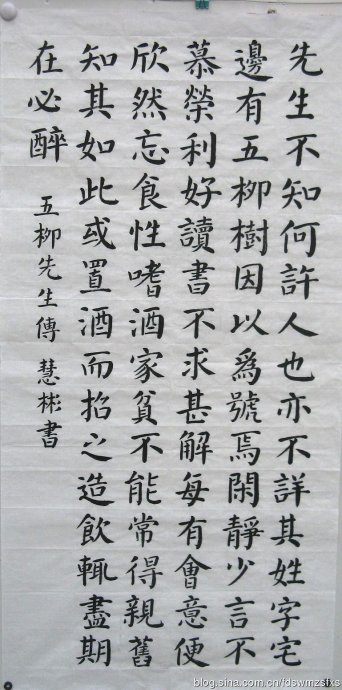 先生不知何許人也亦不詳其姓字宅
邊有五柳樹因以爲號焉閑靜少言不
慕榮利好讀書不求甚解每有會意便
欣然忘食性嗜酒家貧不能常得親舊
知其如此或置酒而招之造飲輒盡期
在必醉
五柳先生傳 慧彬書
blog.sina.com.cn/fdswmzsfxs